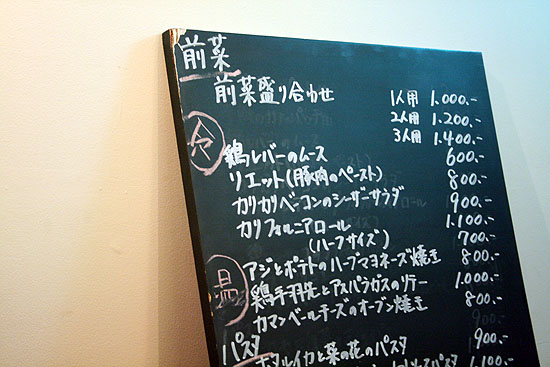 前菜
前菜盛り合わせ 1人用 1.000.-
2人用 1.200.-
3人用 1.400.-
冷
鶏レバーのムース 600.-
リエット(豚肉のペースト) 800.-
カリカリベーコンのシーザーサラダ 900.-
カリフォルニアロール 1.100.-
(ハーフサイズ) 700.-
温
アジとポテトのハーブマヨネーズ焼き 800.-
鶏手羽先とアスパラガスのソテー 1.000.-
カマンベールチーズのオーブン焼き 800.-
パスタ
ホタルイカと菜の花のパスタ 900.-
パスタ 1.100.-